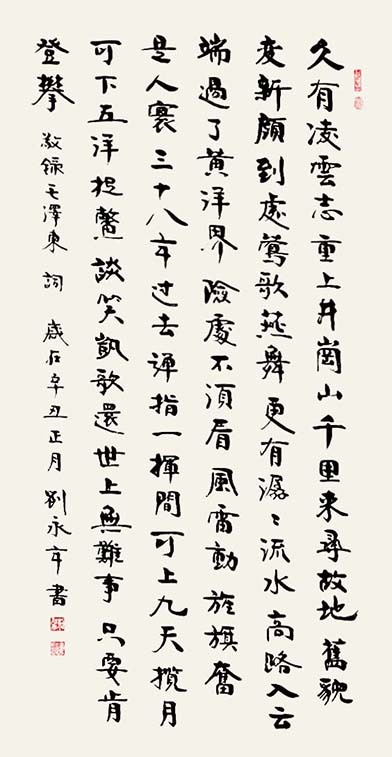 久有凌雲志重上井崗山千里来尋故地舊貌
变新顔到處鶯歌燕舞更有潺〻流水高路入云
端過了黄洋界險處不須看風雷動旌旗奮
是人寰三十八年过去弹指一揮間可上九天攬月
可下五洋捉鱉談笑凱歌還世上無難事只要肯
登攀 敬録毛澤東詞 歲在辛丑正月 劉永年書